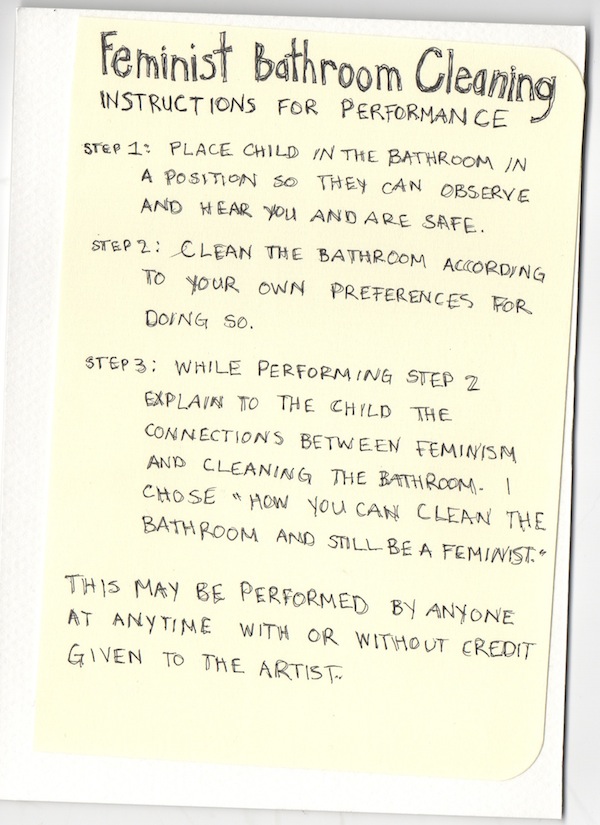 Feminist Bathroom Cleaning
INSTRUCTIONS FOR PERFORMANCE
STEP 1: PLACE CHILD IN THE BATHROOM IN
A POSITION SO THEY CAN OBSERVE
AND HEAR YOU AND ARE SAFE.
STEP 2: CLEAN THE BATHROOM ACCORDING
TO YOUR OWN PREFERENCES FOR
DOING SO.
STEP 3: WHILE PERFORMING STEP 2
EXPLAIN TO THE CHILD THE
CONNECTIONS BETWEEN FEMINISM
AND CLEANING THE BATHROOM. I
CHOSE "HOW YOU CAN CLEAN THE
BATHROOM AND STILL BE A FEMINIST."
THIS MAY BE PERFORMED BY ANYONE
AT ANYTIME WITH OR WITHOUT CREDIT
GIVEN TO THE ARTIST.